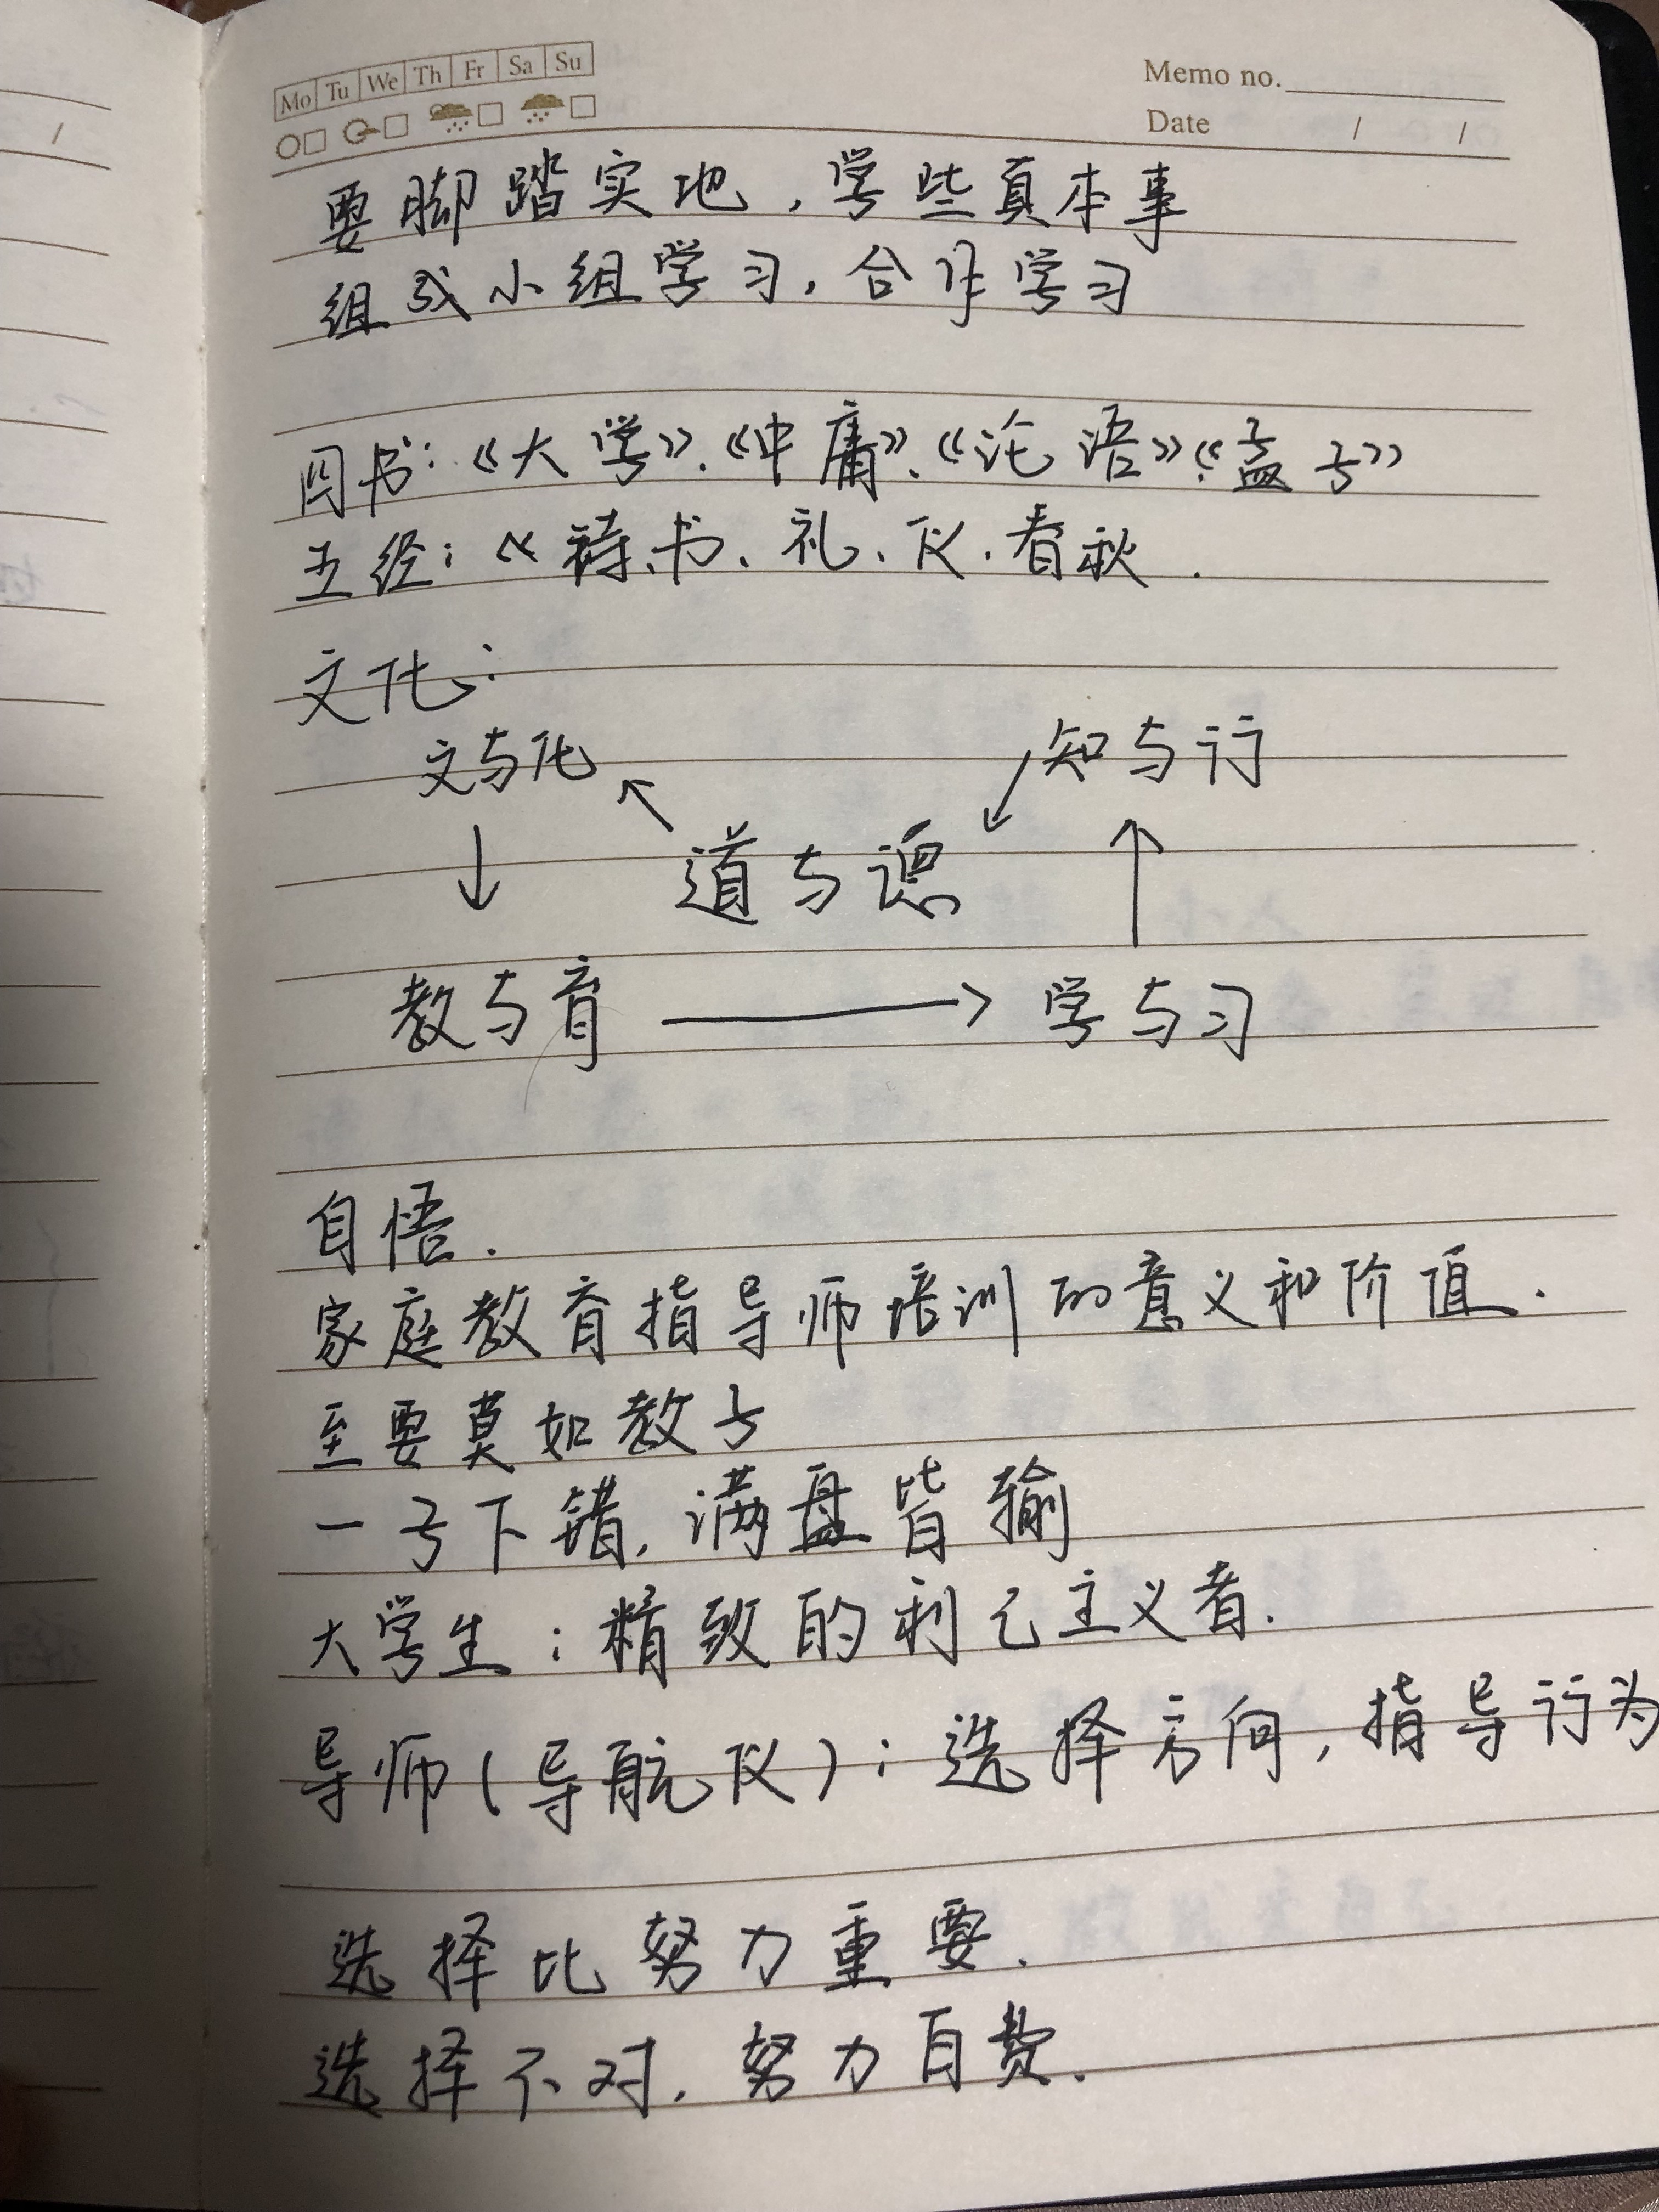 Mo Tu We Th Fr Sa Su
Memo no.
Date / /
要脚踏实地，学些真本事
组成小组学习，合作学习
四书：《大学》、《中庸》、《论语》《孟子》
五经：《诗、书、礼、仪、春秋.
文化：
文与化 知与行
道与
教与育 学与习
自悟.
家庭教育指导师培训的意义和价值.
至要莫如教子
一子下错，满盘皆输
大学生：精致的利己主义者.
导师(导航仪)：选择方向，指导行为
选择比努力重要.
选择不对，努力白费.